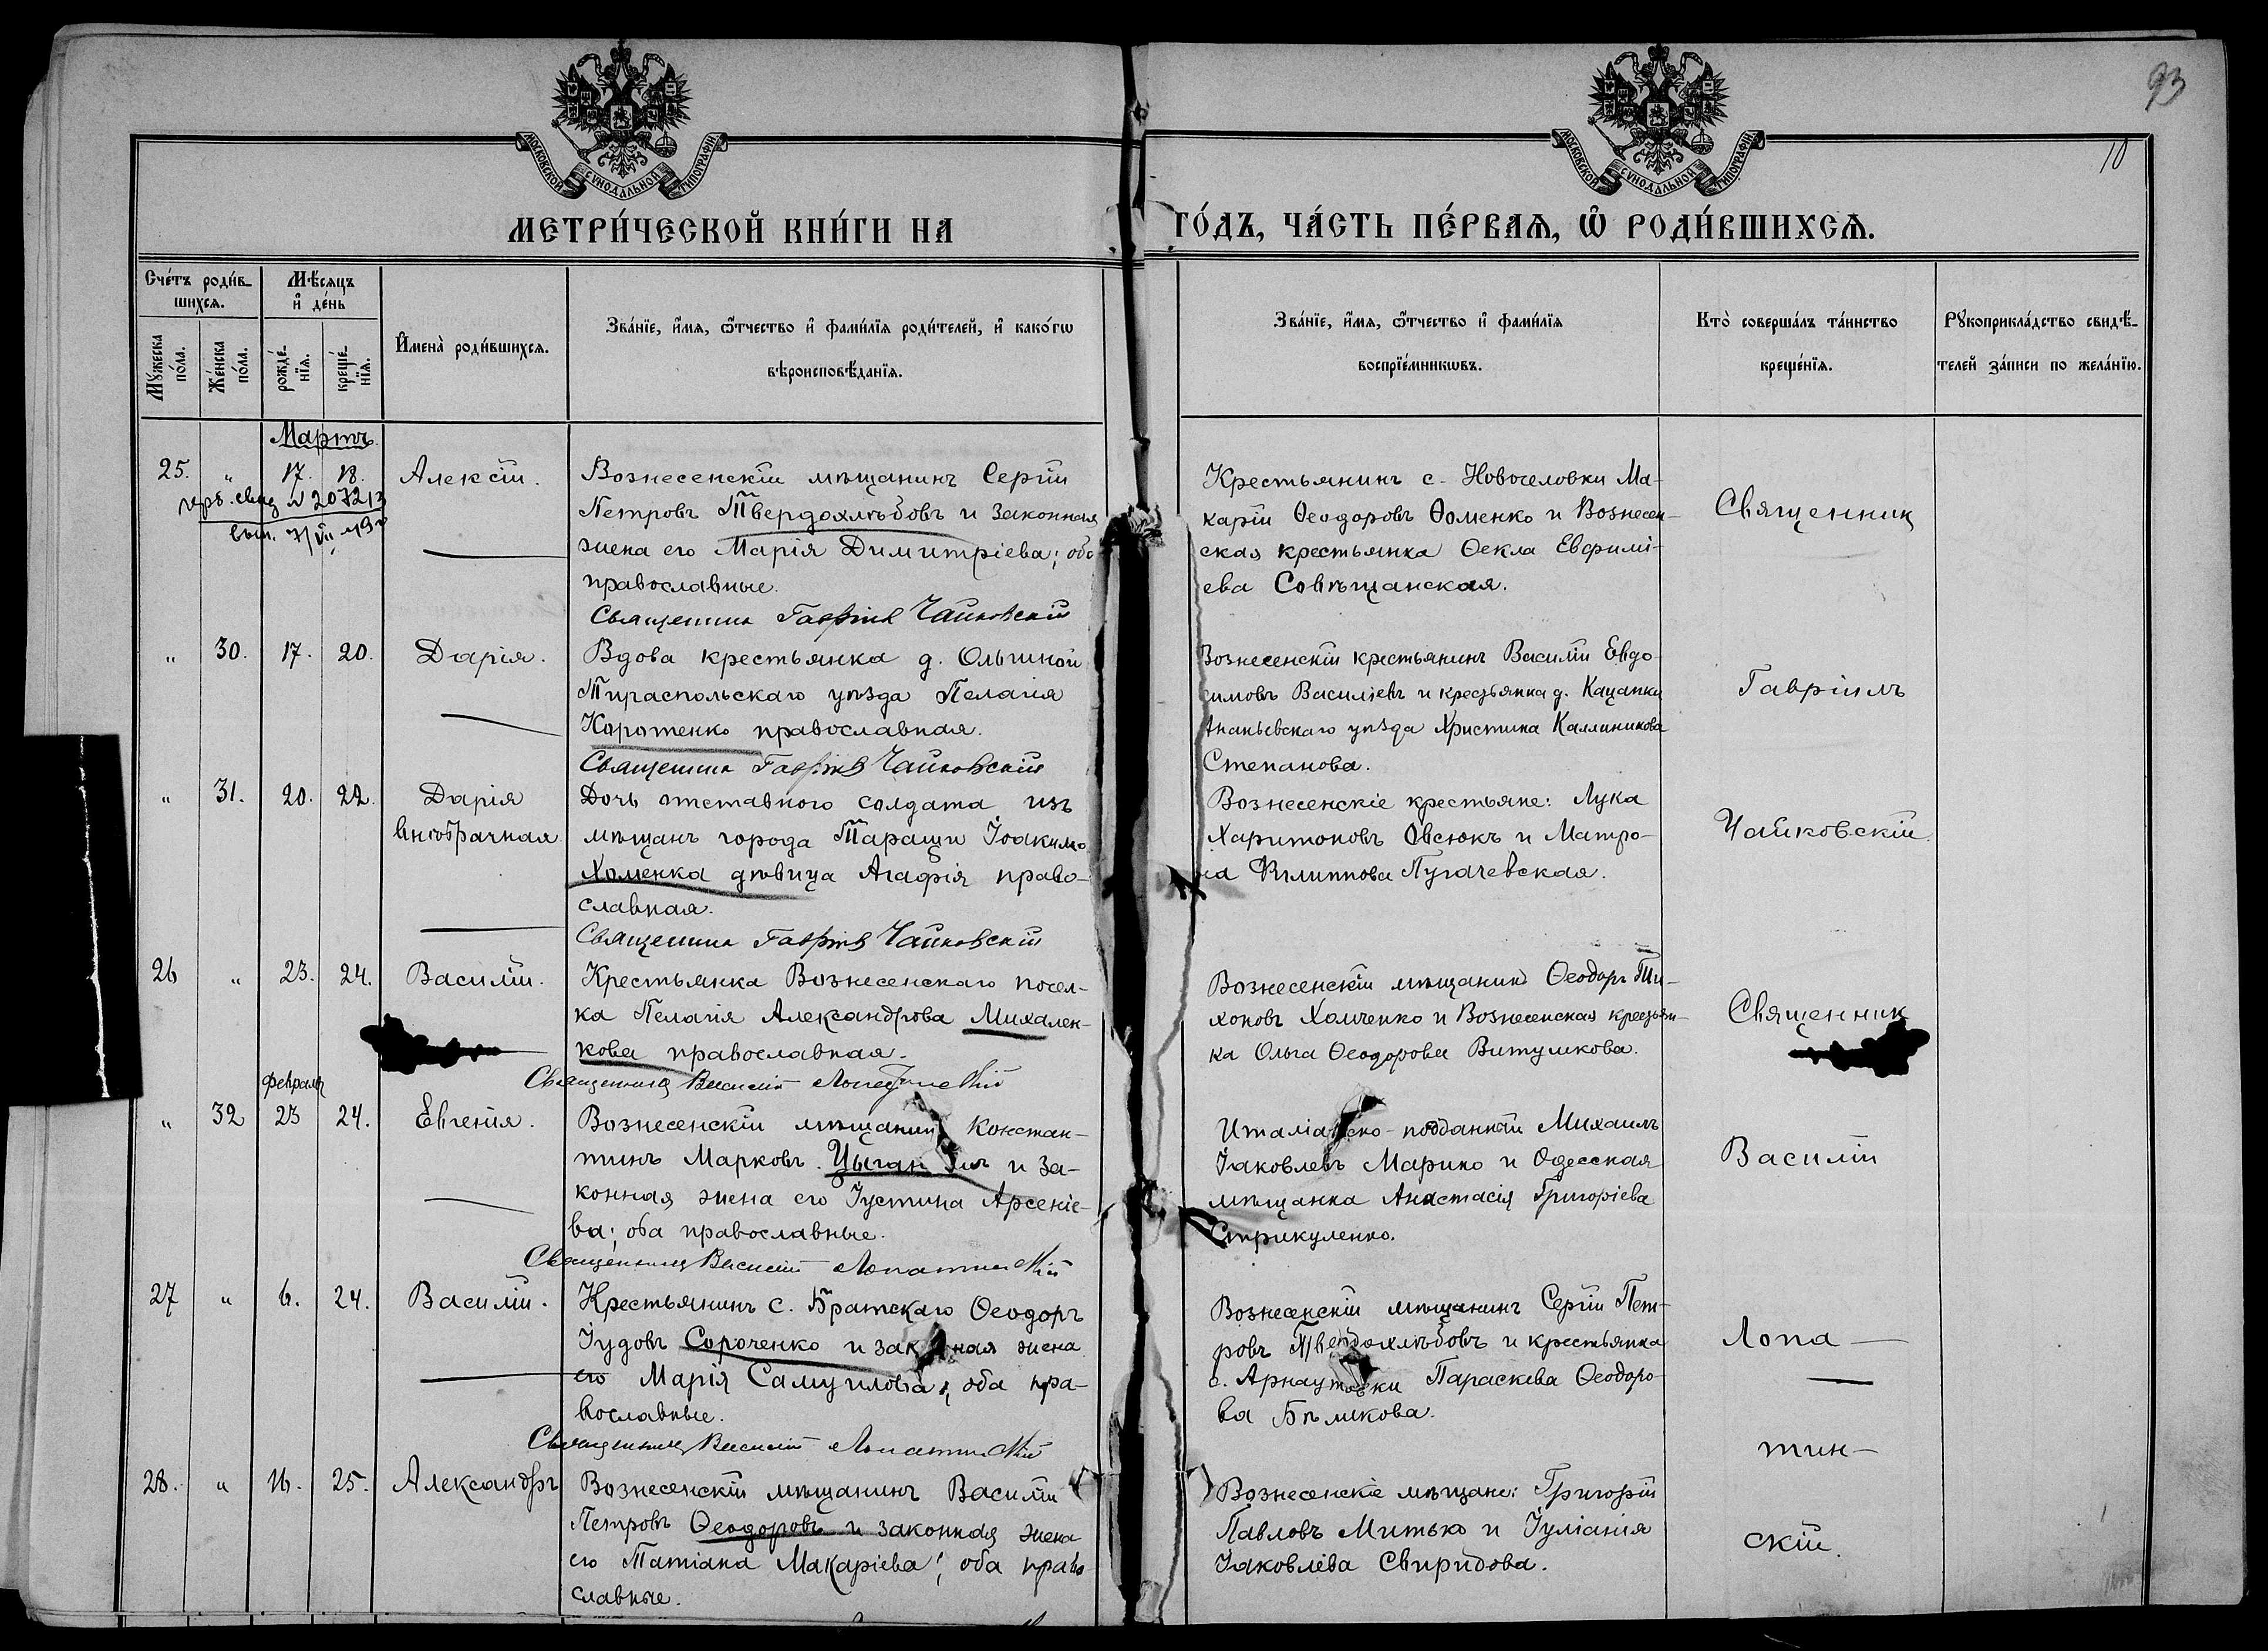 93
10
МОСКОВСКОЙ СУНОДАЛЬНОЙ ТИПОГРАФІИ
МОСКОВСКОЙ СУНОДАЛЬНОЙ ТИПОГРАФІИ
МЕТРИ́ЧЕСКОЙ КНИ́ГИ НА
ГО́ДЪ, ЧА́СТЬ ПЕ́РВАѦ, Ѡ҆ РОДИ́ВШИХСѦ.
Сче́тъ роди́в-
шихсѧ.
Мѣ́сѧцъ
и҆ де́нь
Мꙋ́жеска по́ла.
Же́нска по́ла.
рожде́-
нїѧ.
креще́-
нїѧ.
И҆мена̀ роди́вшихсѧ.
Зва́нїе, и҆́мѧ, ѻ҆́тчество и҆ фами́лїѧ роди́телей, и҆ како́гѡ
вѣроисповѣ́данїѧ.
Зва́нїе, и҆́мѧ, ѻ҆́тчество и҆ фами́лїѧ
воспрїе́мникѡвъ.
Кто̀ соверша́лъ та́инство
креще́нїѧ.
Рꙋкоприкла́дство свидѣ́-
телей за́писи по жела́нїю.
Мартъ.
25. " 17. 18. Алексій.
№ 207213
Вознесенскій мѣщанинъ Сергій
Петровъ Твердохлѣбовъ и законная
жена его Марія Димитріева; оба
православные.
Священникъ Гавріилъ Чайковскій
Крестьянинъ с. Новоселовки Ма-
карій Ѳеодоровъ Ѳоменко и Вознесен-
ская крестьянка Ѳекла Евѳимі-
ева Совѣщанская.
Священникъ
" 30. 17. 20. Дарія.
Вдова крестьянка д. Ольгиной
Тираспольскаго уѣзда Пелагія
Коротенко православная.
Священникъ Гавріилъ Чайковскій
Вознесенскій крестьянинъ Василій Евдо-
кимовъ Василіевъ и крестьянка д. Кацапки
Ананьевскаго уѣзда Христина Каллиникова
Степанова.
Гавріилъ
" 31. 20. 22. Дарія
внебрачная
Дочь отставного солдата изъ
мѣщанъ города Таращи Іоакима
Хоменка дѣвица Агафія право-
славная.
Священникъ Гавріилъ Чайковскій
Вознесенскіе крестьяне: Лука
Харитоновъ Овсюкъ и Матро-
на Филиппова Пугачевская.
Чайковскій.
26 " 23. 24. Василій.
Крестьянка Вознесенскаго посел-
ка Пелагія Александрова Михален-
кова православная.
Священникъ Василій Лопатинскій
Вознесенскій мѣщанинъ Ѳеодоръ Ти-
хоновъ Хомченко и Вознесенская крестьян-
ка Ольга Ѳеодорова Витушкова.
Священникъ
февраль
" 32 23 24. Евгенія.
Вознесенскій мѣщанинъ Констан-
тинъ Марковъ и За-
конная жена его Іустина Арсеніе-
ва; оба православные.
Священникъ Василій Лопатинскій
Италіанско-подданный Михаилъ
Іаковлевъ Марино и Одесская
мѣщанка Анастасія Григоріева
Стрикуленко.
Василій
27 " 6. 24. Василій.
Крестьянинъ с. Братскаго Ѳеодоръ
Іудовъ Сороченко и законная жена
его Марія Самуилова; оба пра-
вославные.
Священникъ Василій Лопатинскій
Вознесенскій мѣщанинъ Сергій Пет-
ровъ Твердохлѣбовъ и крестьянка
с. Арнаутовки Параскева Ѳеодоро-
ва Бѣликова.
Лопа-
тин-
28. " 16. 25. Александръ
Вознесенскій мѣщанинъ Василій
Петровъ Ѳеодоровъ и законная жена
его Татіана Макаріева; оба право
славные.
Вознесенскіе мѣщане: Григорій
Павловъ Митько и Іуліанія
Іаковлева Свиридова.
скій.